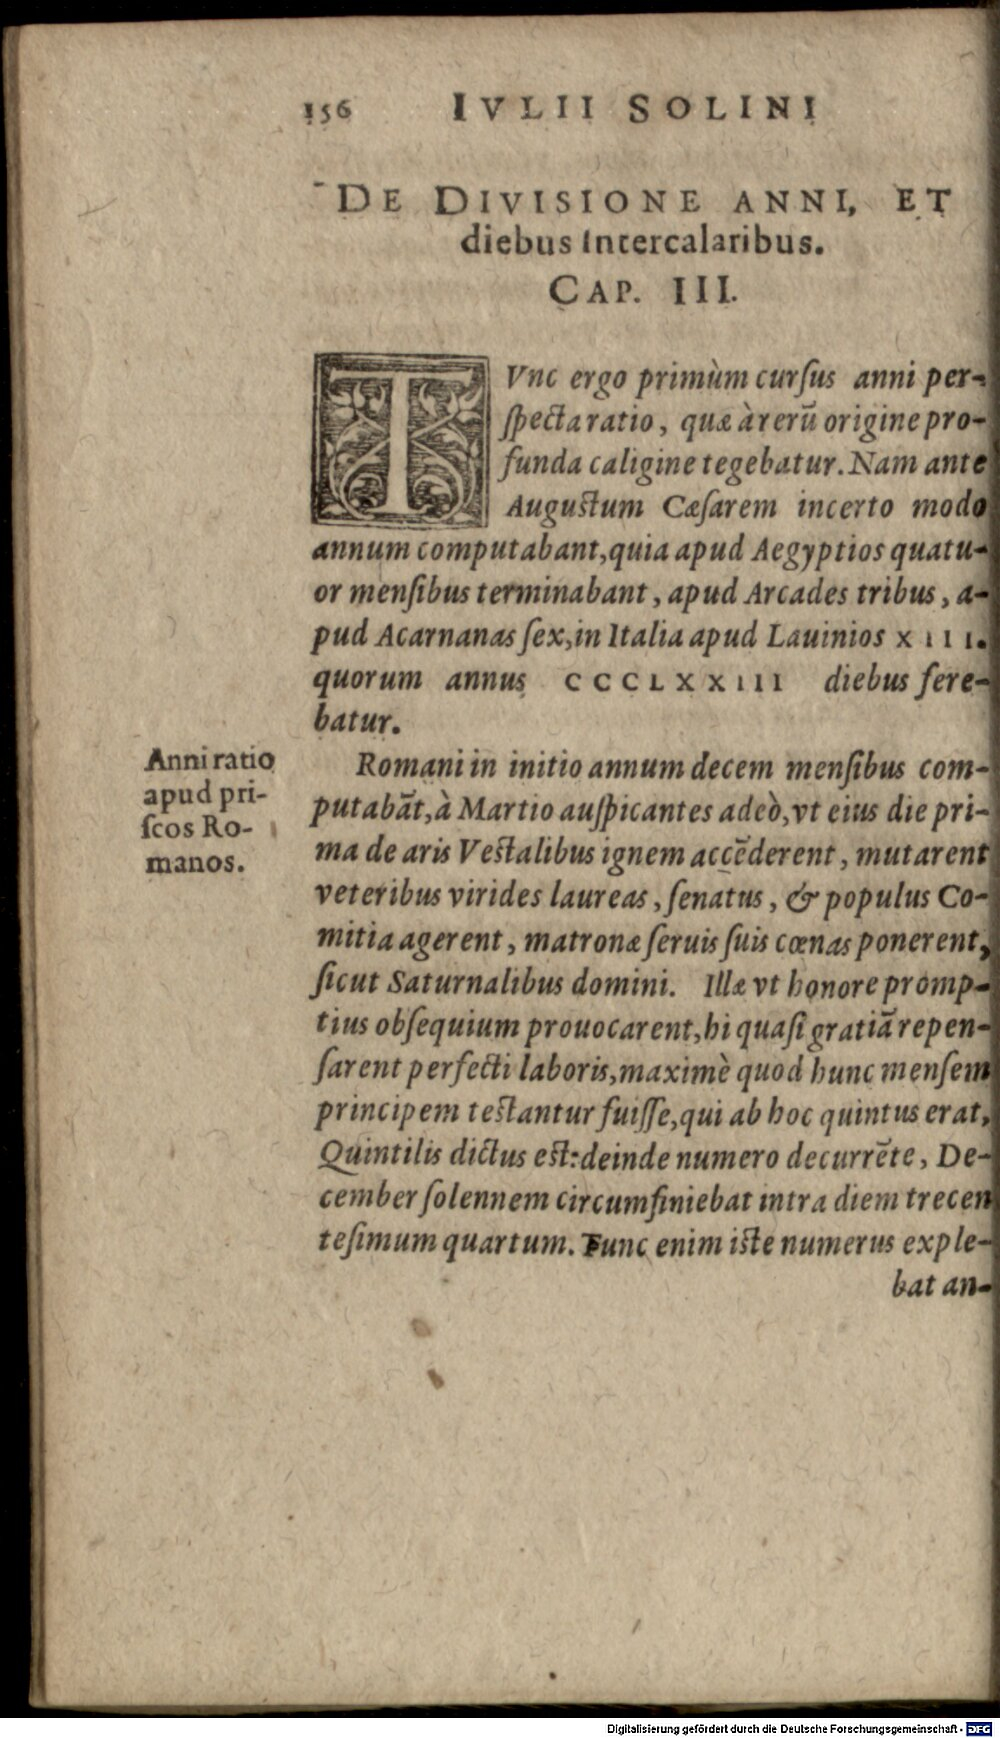 156 IVLII SOLINI
DE DIVISIONE ANNI, ET
diebus intercalaribus.
CAP. III.
TVnc ergo primùm curſus anni per-
ſpecta ratio, quæ à rerū origine pro-
funda caligine tegebatur. Nam ante
Auguſtum Cæſarem incerto modo
annum computabant, quia apud Aegyptios quatu-
or menſibus terminabant, apud Arcades tribus, a-
pud Acarnanas ſex, in Italia apud Lauinios XIII.
quorum annus CCCLXXIII diebus fere-
batur.
Anni ratio
apud pri-
ſcos Ro-
manos.
Romani in initio annum decem menſibus com-
putabāt, à Martio auſpicantes adeò, vt eius die pri-
ma de aris Veſtalibus ignem accēderent, mutarent
veteribus virides laureas, ſenatus, & populus Co-
mitia agerent, matronæ ſeruis ſuis cœnas ponerent,
ſicut Saturnalibus domini. Illæ vt honore promp-
tius obſequium prouocarent, hi quaſi gratiā repen-
ſarent perfecti laboris, maximè quod hunc menſem
principem teſtantur fuiſſe, qui ab hoc quintus erat,
Quintilis dictus eſt: deinde numero decurrēte, De-
cember ſolennem circumfiniebat intra diem trecen
teſimum quartum. Tunc enim iſte numerus exple-
bat an-
Digitalisierung gefördert durch die Deutsche Forschungsgemeinschaft - DFG